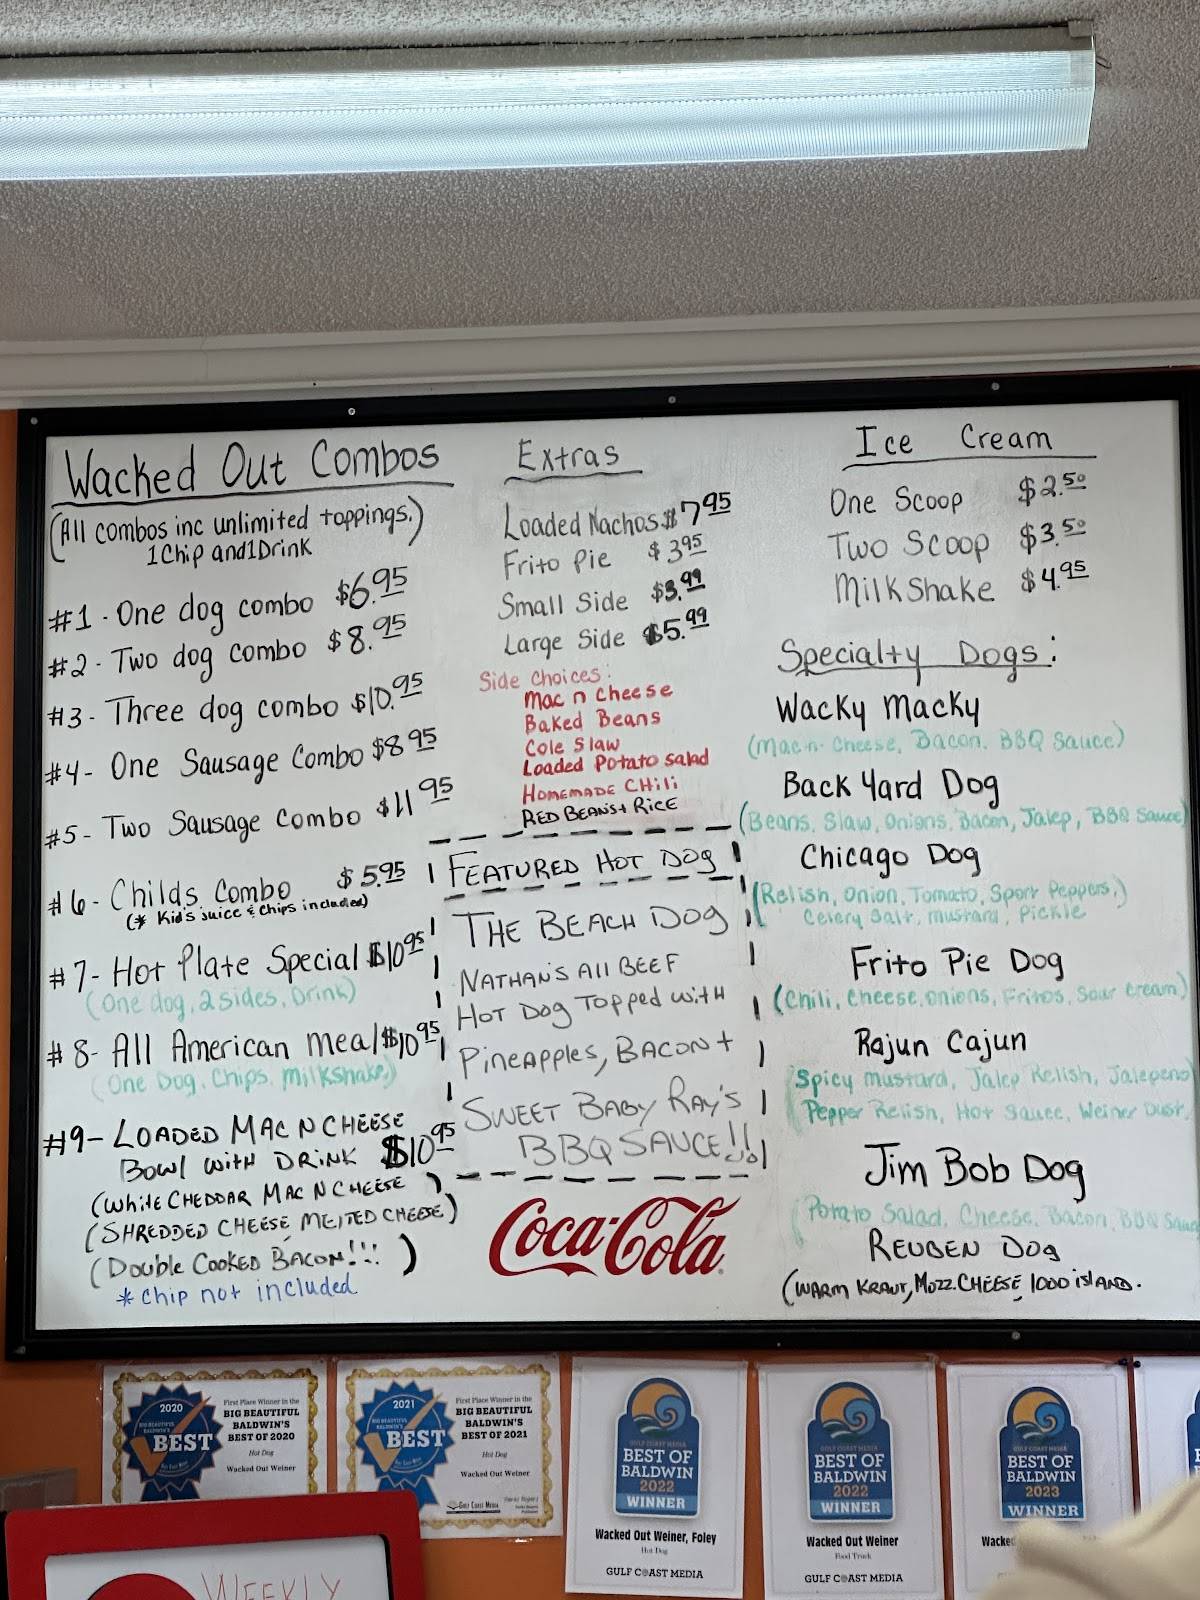 Wacked Out Combos
(All combos inc unlimited toppings.)
1 Chip and 1 Drink
#1 - One dog combo $6.95
#2 - Two dog combo $8.95
#3 - Three dog combo $10.95
#4 - One Sausage Combo $8.95
#5 - Two Sausage Combo $11.95
#6 - Childs Combo $5.95
(* Kid's Juice & Chips included)
#7 - Hot Plate Special $10.95
(One dog, 2 sides, Drink)
#8 - All American meal $10.95
(One Dog, Chips, Milkshake)
#9 - LOADED MAC N CHEESE
BOWL WITH DRINK $10.95
(WHITE CHEDDAR MAC N CHEESE)
(SHREDDED CHEESE, MELTED CHEESE)
(DOUBLE COOKED BACON!!!)
* Chip not included
Extras
Loaded Nachos $7.95
Frito Pie $3.95
Small Side $3.99
Large Side $5.99
Side Choices:
Mac n Cheese
Baked Beans
Cole Slaw
Loaded Potato Salad
HOMEMADE CHILI
RED BEANS + RICE
FEATURED HOT DOG
THE BEACH DOG
NATHAN'S All BEEF
HOT DOG TOPPED WITH
PINEAPPLES, BACON +
SWEET BABY RAY'S
BBQ SAUCE!!
Coca-Cola
Ice Cream
One Scoop $2.50
Two Scoop $3.50
Milkshake $4.95
Specialty Dogs:
Wacky Macky
(Mac-n-Cheese, Bacon, BBQ Sauce)
Back Yard Dog
(Beans, Slaw, Onions, Bacon, Jalep, BBQ Sauce)
Chicago Dog
(Relish, Onion, Tomato, Sport Peppers,)
Celery Salt, mustard, Pickle
Frito Pie Dog
(Chili, Cheese, onions, Fritos, Sour cream)
Rajun Cajun
Spicy mustard, Jalep Relish, Jalepeno
Pepper Relish, Hot Sauce, Weiner Dust,
Jim Bob Dog
Potato Salad, Cheese, Bacon, BBQ Sauc
REUBEN DOG
(WARM KRAUT, MOZZ. CHEESE, 1000 ISLAND.
2020
BIG BEAUTIFUL
BALDWIN'S
BEST
First Place Winner in the
BIG BEAUTIFUL
BALDWIN'S
BEST OF 2020
Hot Dog
Wacked Out Weiner
2021
BIG BEAUTIFUL
BALDWIN'S
BEST
First Place Winner in the
BIG BEAUTIFUL
BALDWIN'S
BEST OF 2021
Hot Dog
Wacked Out Weiner
GULF COAST MEDIA
GULF COAST MEDIA
BEST OF
BALDWIN
2022
WINNER
Wacked Out Weiner, Foley
Hot Dog
GULF COAST MEDIA
GULF COAST MEDIA
BEST OF
BALDWIN
2022
WINNER
Wacked Out Weiner
Food Truck
GULF COAST MEDIA
GULF COAST MEDIA
BEST OF
BALDWIN
2023
WINNER
Wacked
WEEKLY